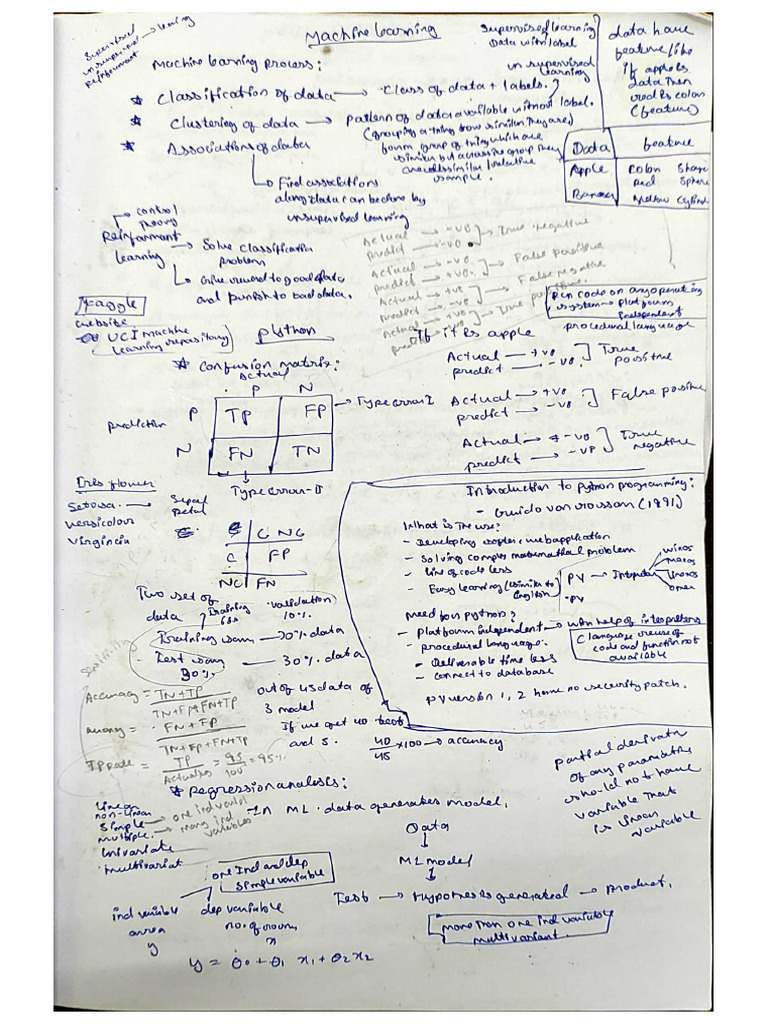 Machine learning
Supervised
unsupervised → learning
Reinforment
Machine learning process:
Supervised learning
Data with label
unsupervised
learning
data have
feature like
if apple is
data then
red is colour
(feature)
* Classification of data → Class of data + labels.
* Clustering of data → pattern of data available without label.
(grouping a thing how similar they are)
form group of thing which are
similar but across the group they
are dissimilar
example.
* Associations of data
↳ Find associations
along data can be done by
unsupervised learning
Data feature
Apple Colour Shape
Red Sphere
Banana Yellow Cylind
→ control
theory
Reinforment
learning → Solve classification
problem
↳ Give reward to good data
and punish to bad data.
Actual → -ve
predict → -ve } → True negative
Actual → -ve
predict → +ve } → False positive
Actual → +ve
predict → -ve } → False negative
Actual → +ve
predict → +ve } → True positive.
Run code on any operating
system → platform
independent
procedural language
Kaggle
website
UCI machine
learning repository
python
If it is apple
Actual → +ve
predict → -ve } True
positive
Actual → +ve
predict → -ve } False positive
Actual → -ve
predict → -ve } True
negative
* Confusion matrix:
Actual
P N
prediction P TP FP → Type error I
N FN TN
Type error-II
Iris flower
Setosa → Sepal
petal
versicolour
virgincia
C NC
C FP
NC FN
Introduction to python programming:
- Guido van roussan (1991)
What is the use?
- Developing webapplication
- Solving complex mathematical problem
- line of code less
- Easy learning (similar to
English)
PY → Interpreter
winos
macos
linos
other
.PY
Need for python?
- platform independent → with help of interpreters
- procedural language.
- Deliverable time less
- connect to database
C language reuse of
code and function not
available
PV version 1, 2 have no security patch.
Two set of
data
training validation
10%
Training → 70% data
Test → 30% data
30%
Accuracy = TN+TP
TN+FP+FN+TP
= FN+FP
TN+FP+FN+TP
TP rate = TP = 95 = 95%
Actual yes 100
out of 45 data of
3 model
If we get 40 best
and 5. 40/45 x100 → accuracy
partial derivate
of any parametric
should not have
variable that
is linear
variable
* Regression analysis:
linear
non-linear
simple → one ind variable
multiple → many ind
variables
univariate
multivariat
- In ML. data generates model.
Data
↓
ML model
↓
Test → Hypothesis generated → product.
one Ind and dep
simple variable
ind variable
area
y
dep variable
no. of rooms
x
more than one ind variable
multivariant.
y = θ0 + θ1 x1 + θ2 x2